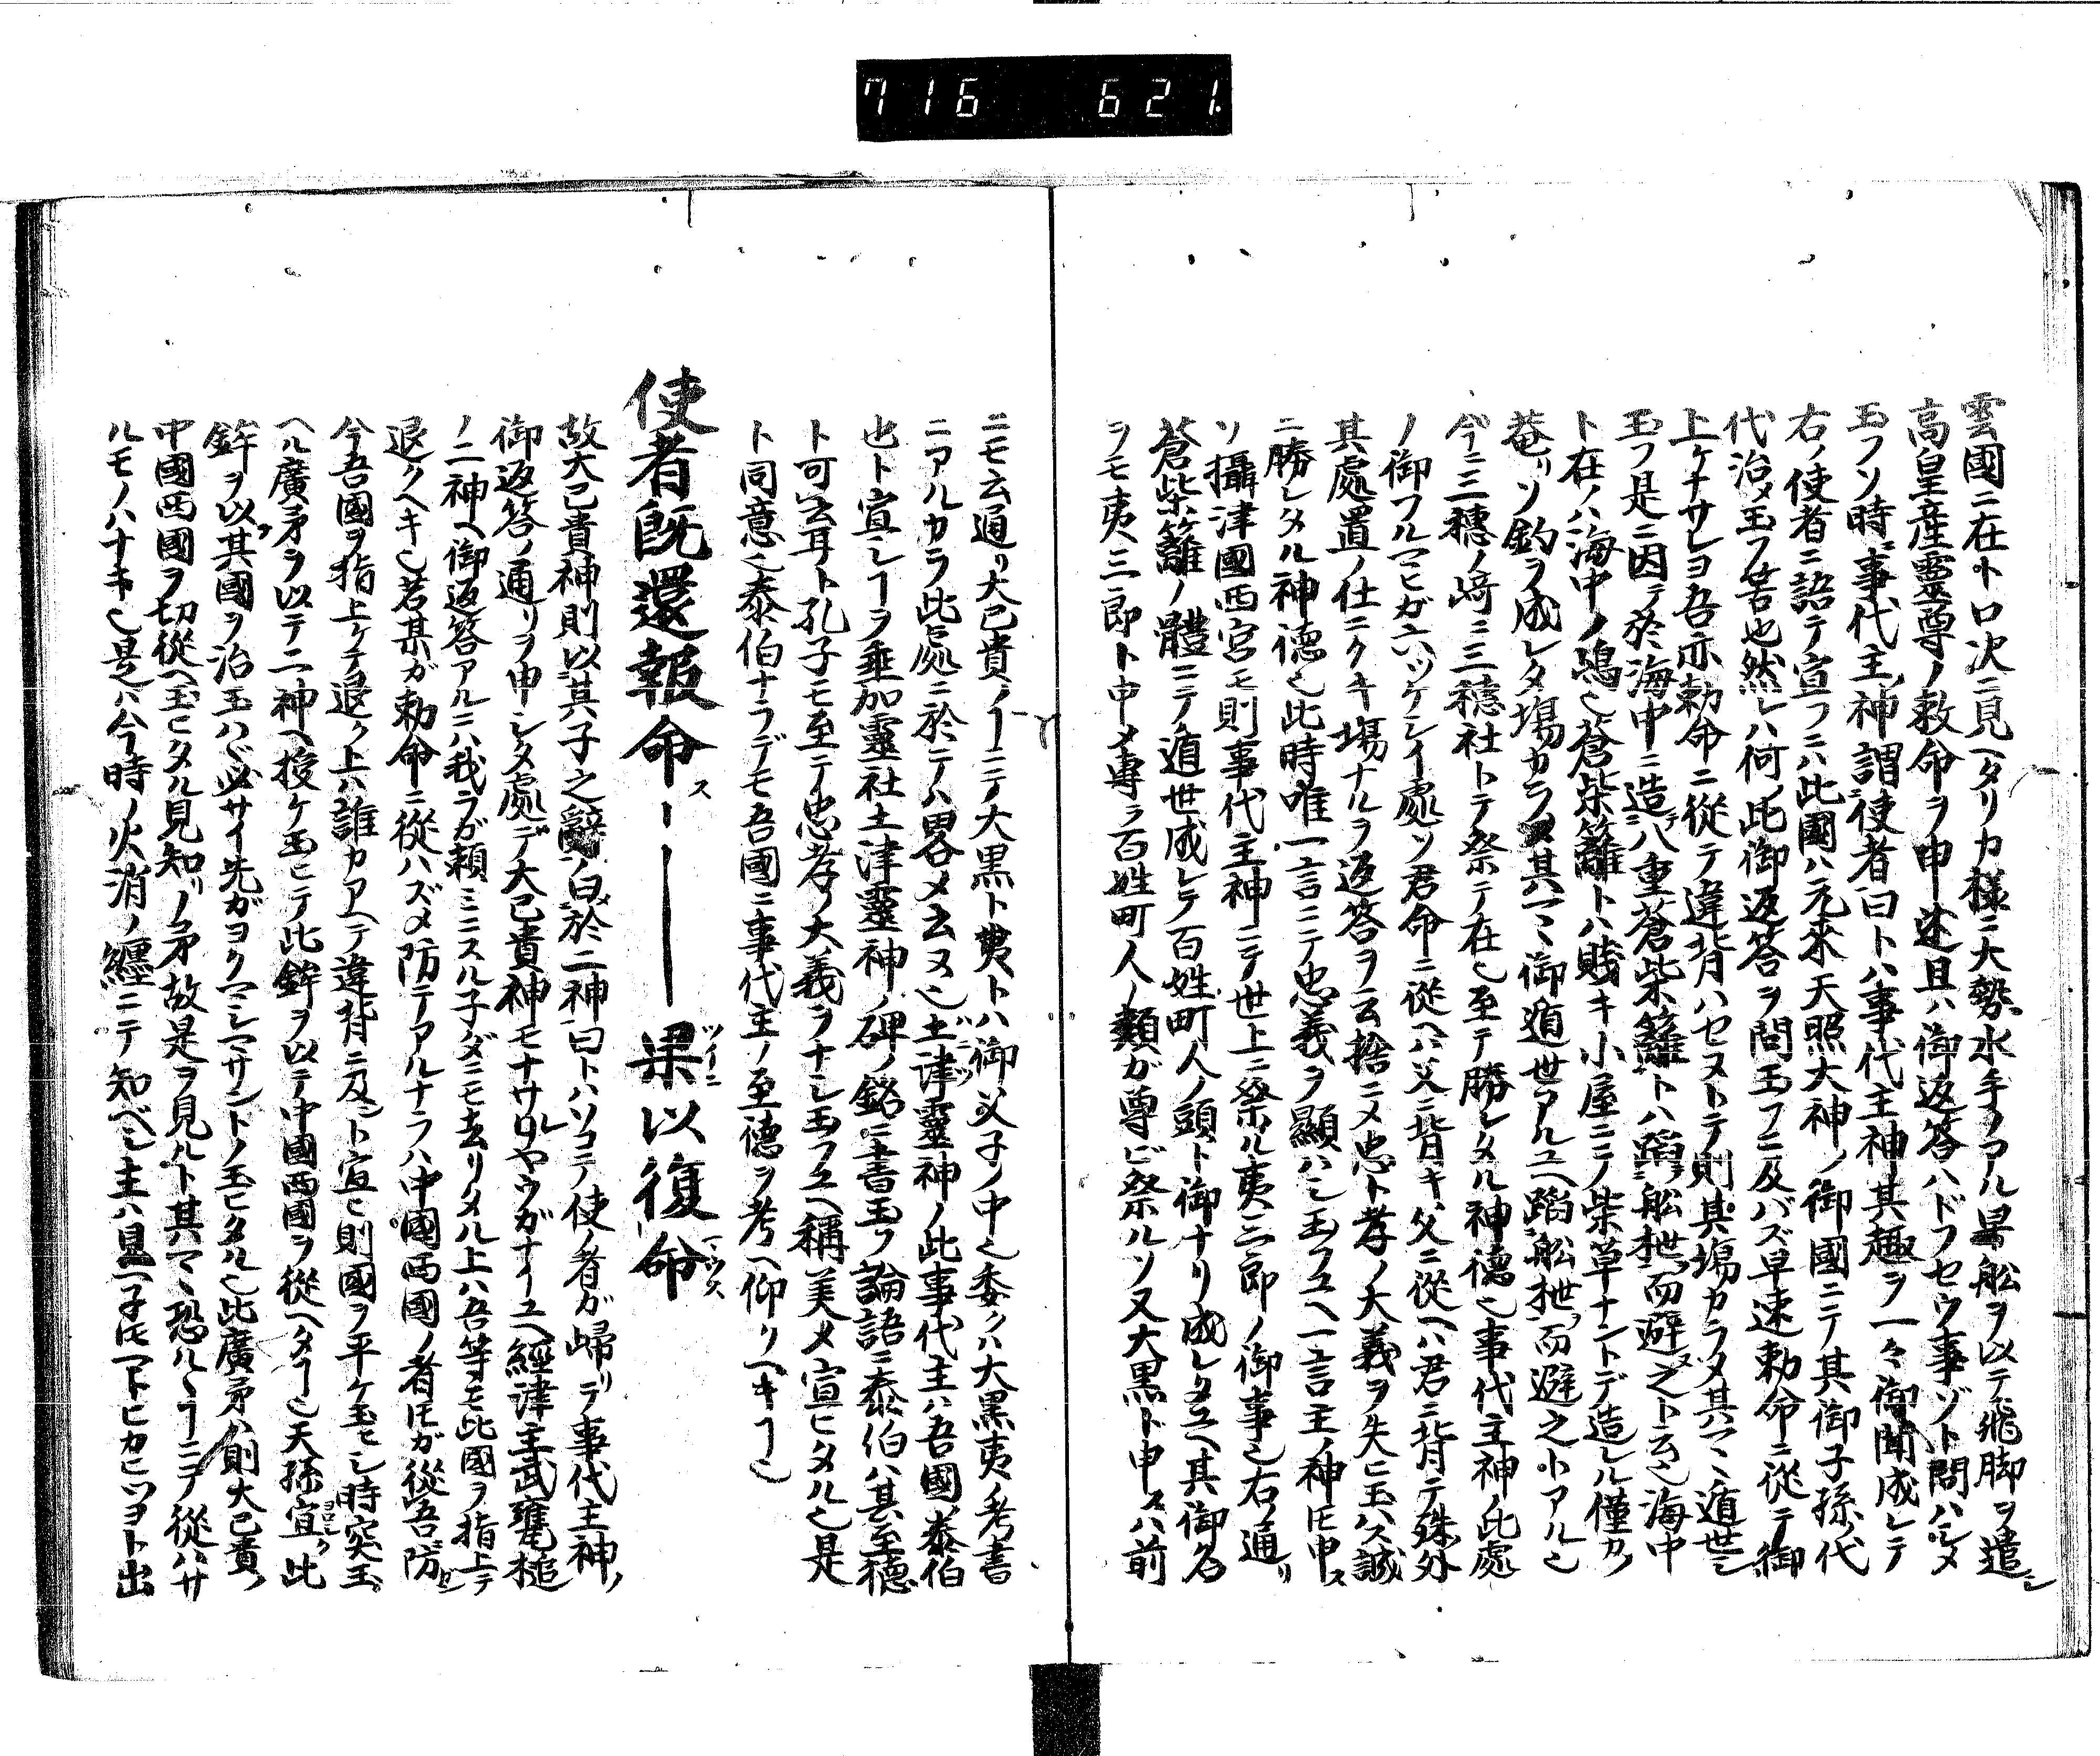 716 621.
雲國ニ在ト口次ニ見ヘタリカ様ニ大勢水手ノアル早舩ヲ以テ飛脚ヲ遣シ
高皇産靈尊ノ敕命ヲ申述且ハ御返答ハドフセウ事ゾト問ハシメ
玉フソ時事代主神謂使者曰トハ事代主神其趣ヲ一々御聞成レテ
右ノ使者ニ語テ宣フニハ此國ハ元来天照大神ノ御國ニテ其御子孫ノ代
代治メ玉フ筈也然レハ何ノ此御返答ヲ問玉フニ及バズ早速勅命ニ從テ御
上ケナサレヨ吾亦勅命ニ從テ違背ハセヌトテ則其塲カラメ其マヽ遁世シ
玉フ是ニ因テ於海中ニ造八重蒼柴籬トハ蹈舩枻而避之ト云〻海中
ト在ハ海中ノ嶋〻蒼柴籬トハ賎キ小屋ニノ柴草ナントデ造レル僅カノ
菴リソ釣ヲ成レタ塲カラ其マヽ御遁世アルユヘ蹈舩枻而避之トアル〻
今ニ三穗ノ﨑ニ三穗社トテ祭テ在〻至テ勝レタル神德〻事代主神ノ此處
ノ御フルマヒガ六ツケシイ處ソ君命ニ從ヘハ父ニ背キ父ニ從ヘハ君ニ背テ殊外
其處置ノ仕ニクキ塲ナルヲ返答ヲ云捨ニメ忠ト孝ノ大義ヲ失ヒ玉ハス誠
ニ勝レタル神德〻此時唯一言ニテ忠義ヲ顯ハシ玉フユヘ一言主ノ神トモ申ス
ソ攝津國西宮モ則事代主神ニテ世上ニ祭ル夷三郎ノ御事〻右ノ通リ
蒼柴籬ノ體ニテ遁世成レテ百姓町人ノ頭ト御ナリ成レタユヘ其御名
ヲモ夷三郎ト申メ專ラ百姓町人ノ類ガ尊ビ祭ルソ又大黒ト申スハ前
ニモ云通リ大己貴ノ𠀋ニテ大黒ト夷トハ御父子ノ中〻委クハ大黒夷ノ考書
ニアルカラ此處ニ於テハ畧メ云ヌ〻土津靈神ノ此事代主ハ吾國ノ泰伯
也ト宣シヿヲ垂加靈社土津靈神ノ碑ノ銘ニ書玉フ論語ニ泰伯ハ其至德
ト可云耳ト孔子モ至テ忠孝ノ大義ヲナシ玉フユヘ稱美メ宣ヒタル〻是
ト同意〻泰伯ナラデモ吾國ニ事代主ノ至德ヲ考ヘ仰クヘキヿ〻
使者既還報命ス――果以復命
故大己貴神則以其子之辭ノ白於二神曰トハソコテ使ノ者ガ歸リテ事代主神ノ
御返答ノ通リヲ申シタ處デ大己貴神モナサレヤウガナイユヘ經津主武甕槌
ノ二神ヘ御返答アルニハ我ラガ頼ミニスル子ダニモ去リタル上ハ吾等モ此國ヲ指上テ
退クヘキ〻若某ガ勅命ニ從ハズメ防テアルナラハ中國西國ノ者トモガ從吾防
今吾國ヲ指上ケテ退ク上ハ誰カアヘテ違背ニ及ント宣ヒ則國ヲ平ケ玉ヒシ時突玉
ヘル廣矛ヲ以テ二神ヘ授ケ玉ヒテ此鉾ヲ以テ中國西國ヲ從ヘタヿ〻天孫宜ク此
鉾ヲ以其國ヲ治玉ハヾ必サイ先ガヨクマシマサントノ玉ヒタル〻此廣矛ハ則大己貴ノ
中國西國ヲ切從ヘ玉ヒタル見知リノ矛故是ヲ見ルト其マヽ恐ルヽヿニテ從ハサ
ルモノハナキ〻是ハ今時ノ火消ノ纒ニテ知ベシ主ハ見ヘ子トモマトヒカ二ツヨト出